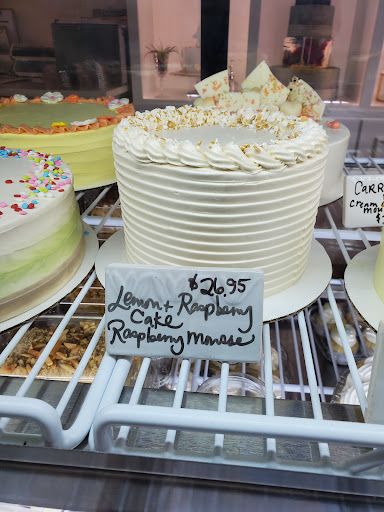 $26.95
Lemon + Raspberry
Cake
Raspberry Mousse
CARR
cream